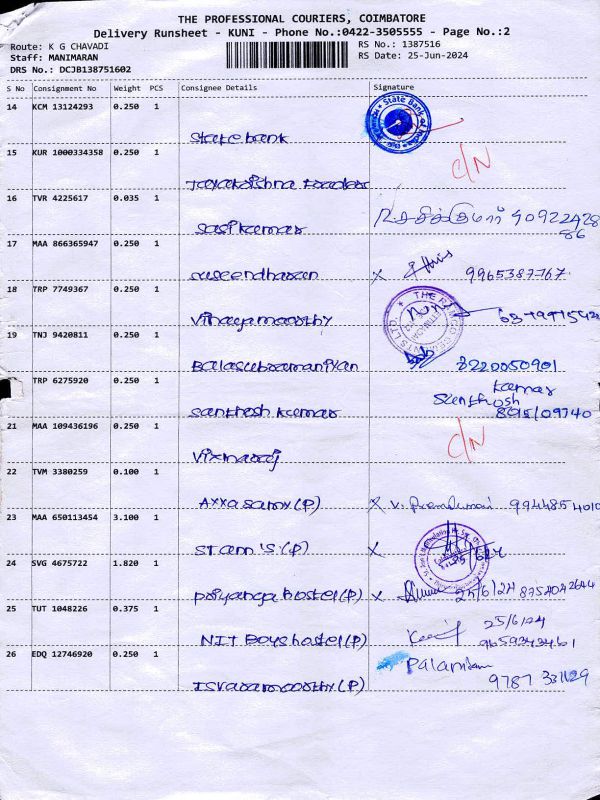 THE PROFESSIONAL COURIERS, COIMBATORE
Delivery Runsheet - KUNI - Phone No.:0422-3505555 - Page No.:2
Route: K G CHAVADI
Staff: MANIMARAN
DRS No.: DCJB138751602
RS No.: 1387516
RS Date: 25-Jun-2024
S No Consignment No Weight PCS Consignee Details Signature
14 KCM 13124293 0.250 1
State bank
State Bank of India
15 KUR 1000334358 0.250 1
C/N
16 TVR 4225617 0.035 1
Sasikumar
17 MAA 866365947 0.250 1
x 9965387767
18 TRP 7749367 0.250 1
Vinayamoorthy
19 TNJ 9420811 0.250 1
Balasubramaniyan 8220050901
TRP 6275920 0.250 1
Kumar
Santhosh
Santhosh Kumar
21 MAA 109436196 0.250 1
C/N
22 TVM 3380259 0.100 1
Ayyasamy (P) x V. Premkumar 9944854010
23 MAA 650113454 3.100 1
St ann's (P) x
24 SVG 4675722 1.820 1
Priyanga hostel (P) x 25/6/24 8754042644
25 TUT 1048226 0.375 1
25/6/24
NIT Boys hostel (P) 9659343461
26 EDQ 12746920 0.250 1
Isvaramoorthy (P) 9787 331129